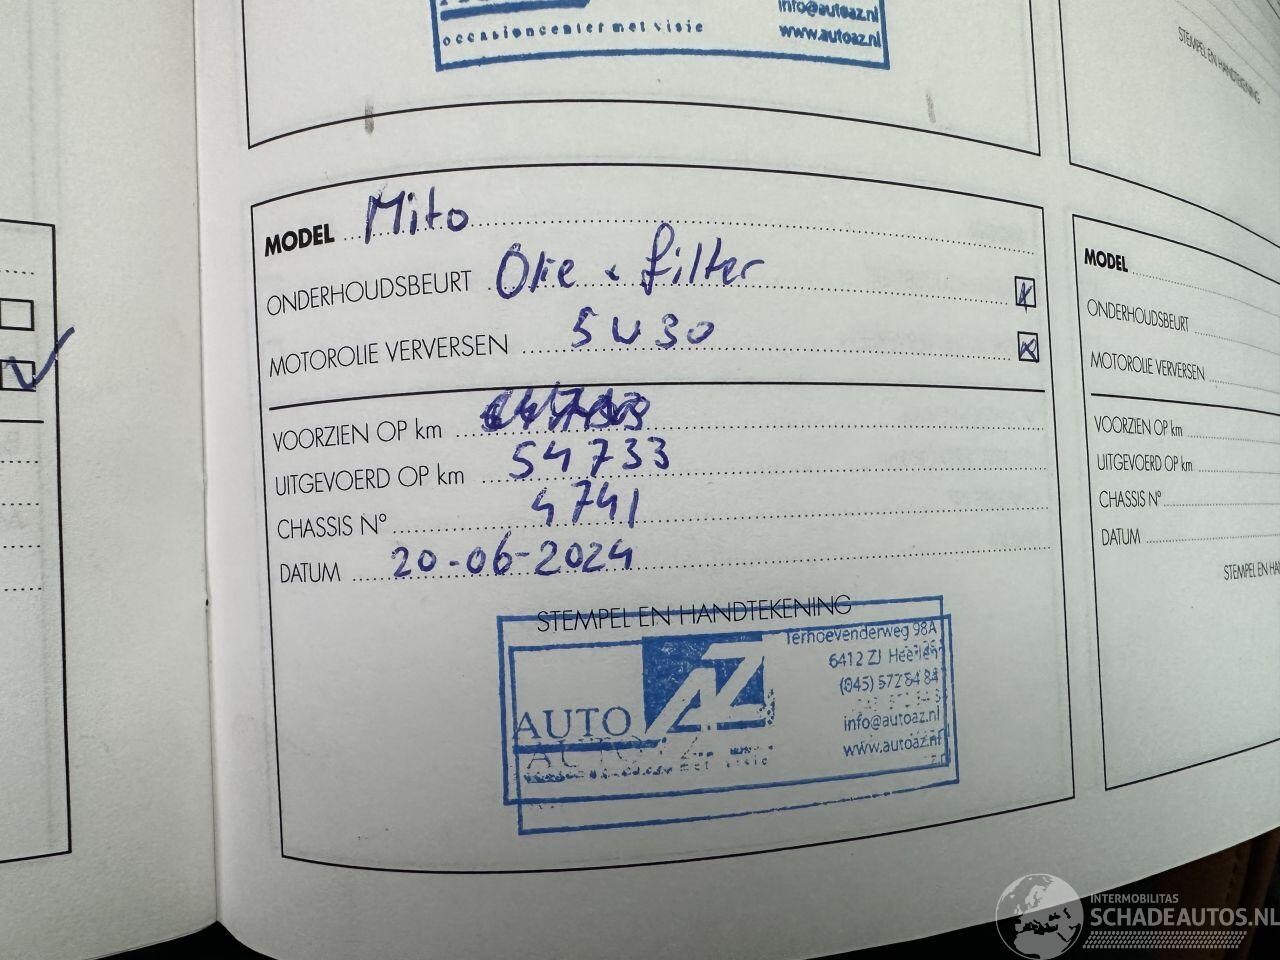 info@autoaz.nl
occasioncenter met visie
www.autoaz.nl
STEMPEL EN HANDTEKENING
MODEL Mito
ONDERHOUDSBEURT Olie + filter
MOTOROLIE VERVERSEN 5W30
VOORZIEN OP km
UITGEVOERD OP km 54733
CHASSIS Nº 4741
DATUM 20-06-2024
STEMPEL EN HANDTEKENING
Terhoevenderweg 98A
6412 ZJ Heerlen
(045) 572 84 84
info@autoaz.nl
www.autoaz.nl
AUTO AZ
AUTO
met visie
MODEL
ONDERHOUDSBEURT
MOTOROLIE VERVERSEN
VOORZIEN OP km
UITGEVOERD OP km
CHASSIS Nº
DATUM
STEMPEL EN HA
INTERMOBILITAS
SCHADEAUTOS.NL